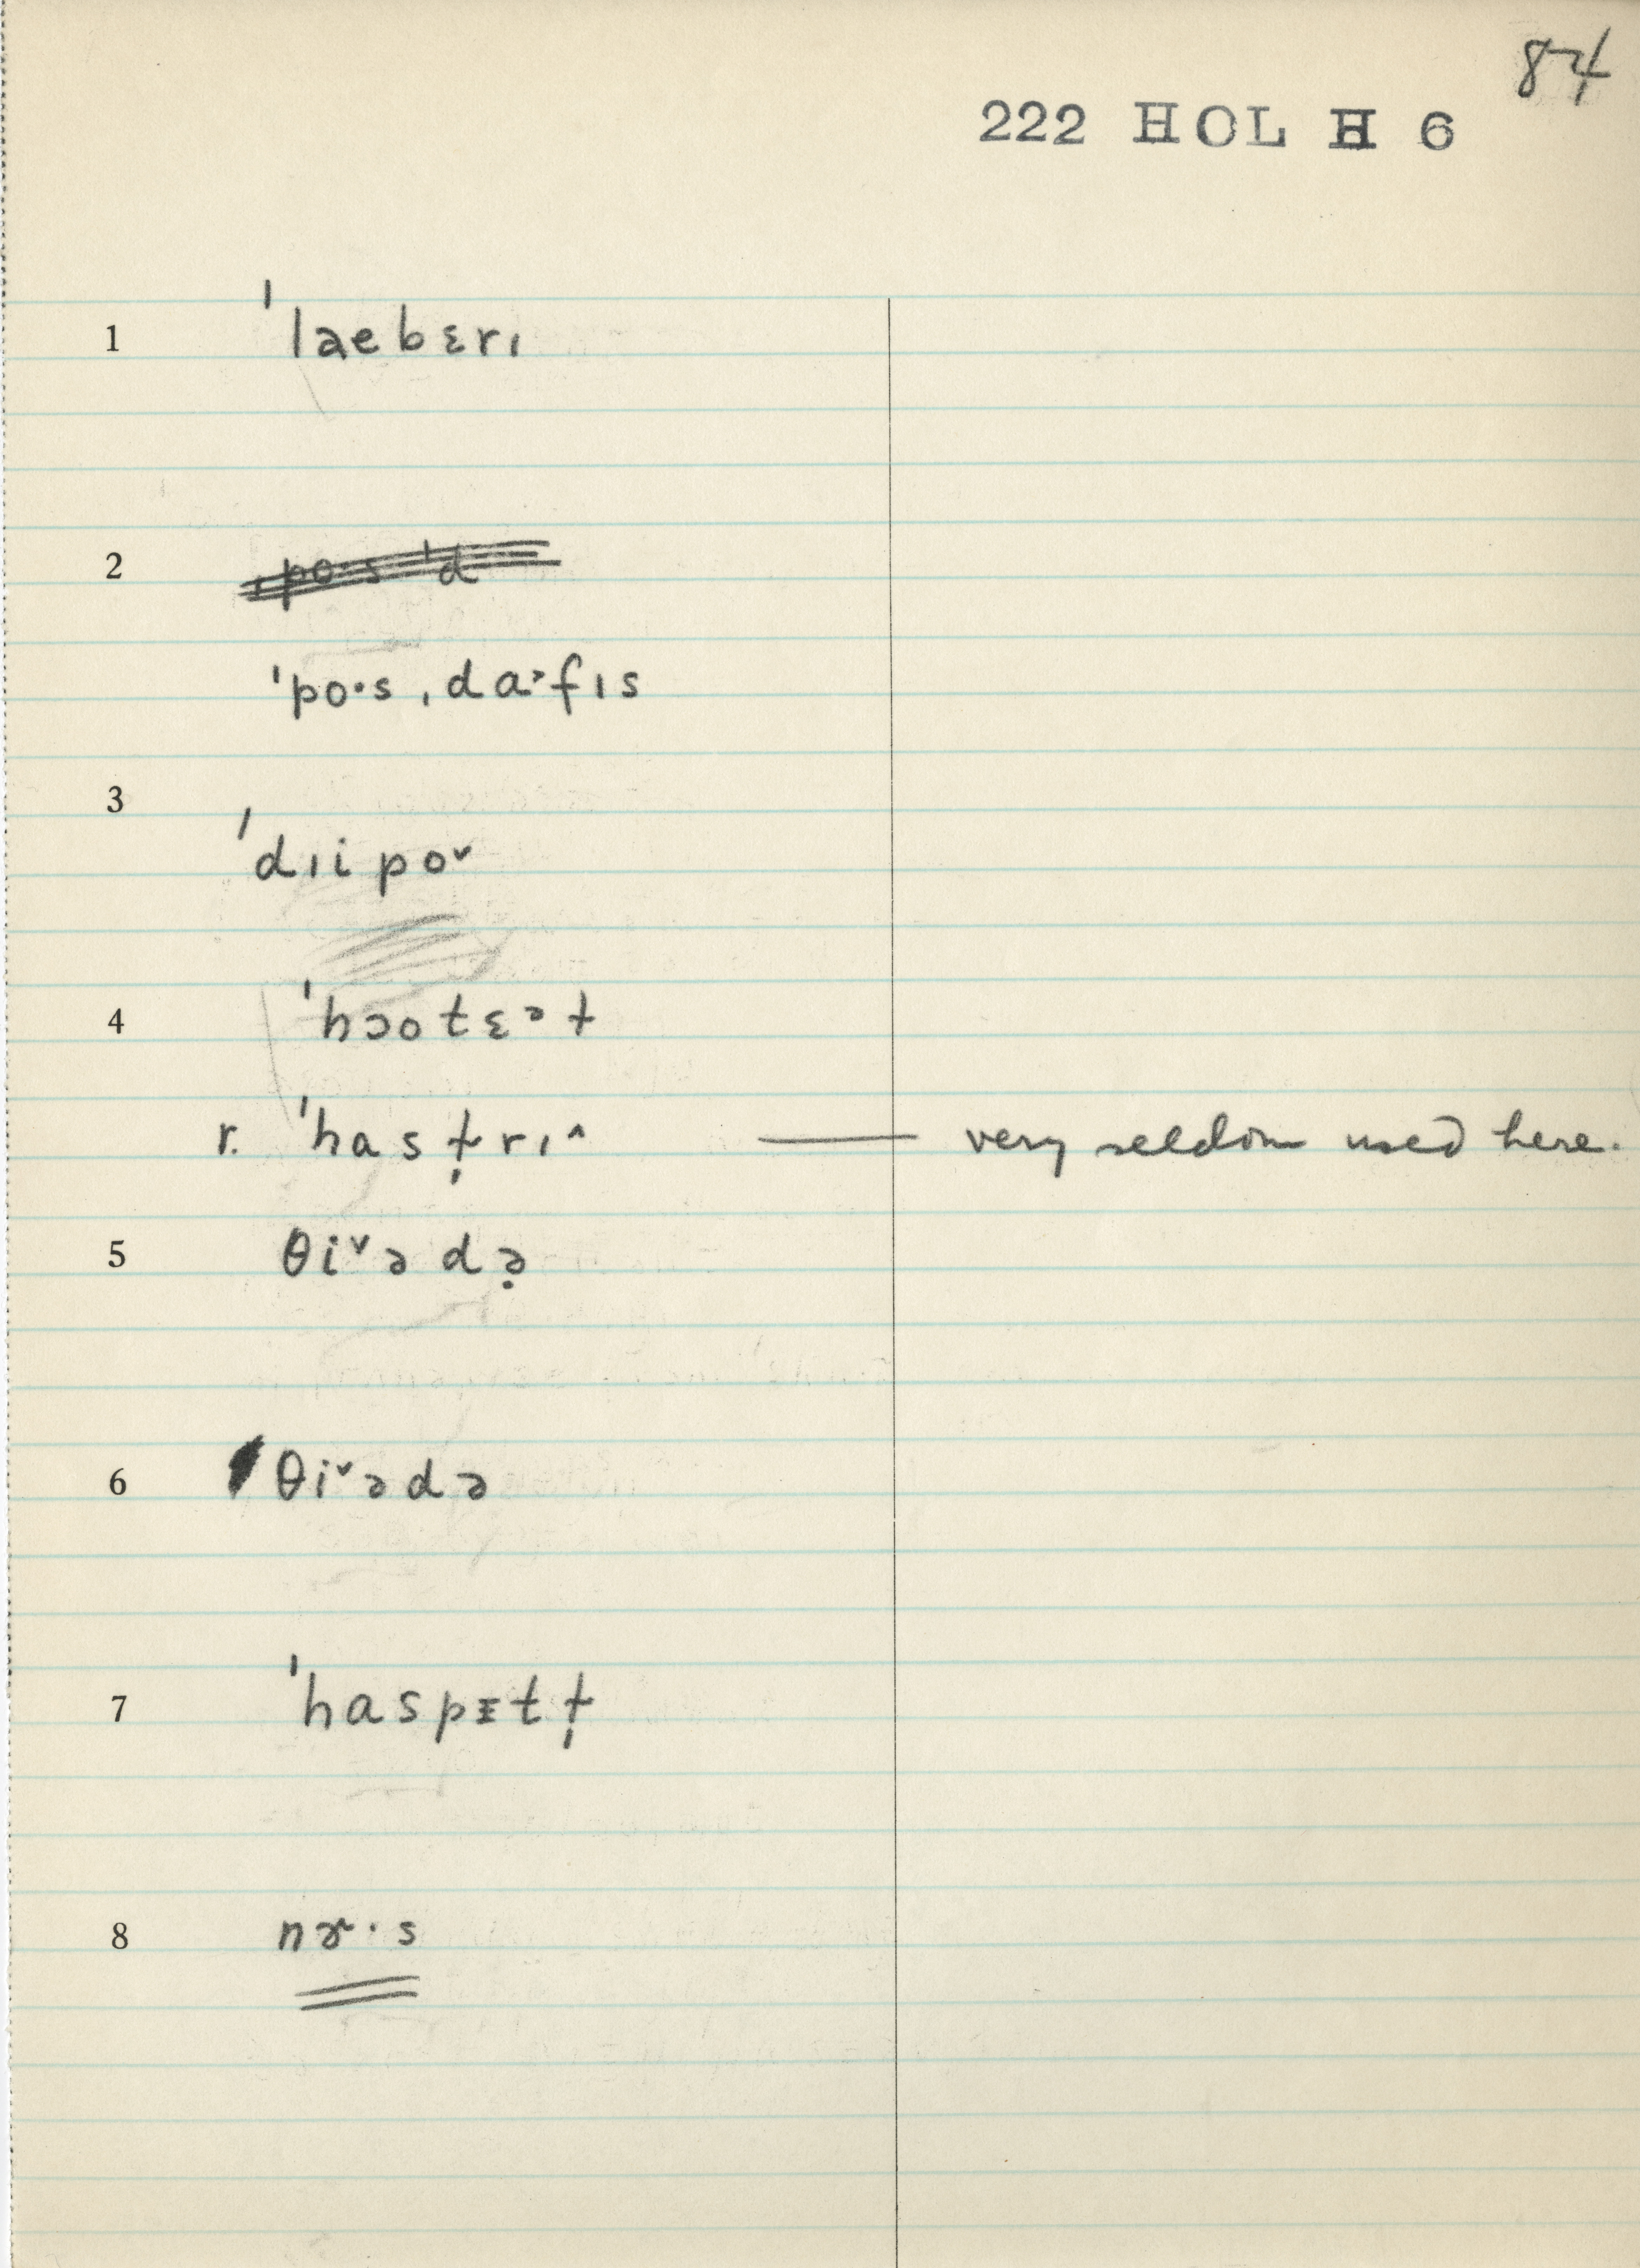 84
222 HOL H 6
1 ˈlaebɛrı
2 ˌpo·s ˈd
ˈpo·s ˌda˃fıs
3 ˈdıipo˅
4 ˈhɔotɛᵊɫ
r. ˈhasɫ̩rı˄ — very seldom used here.
5 θi˅ədə̣
6 θi˅ədə
7 ˈhaspɪtɫ̩
8 nɚ·s